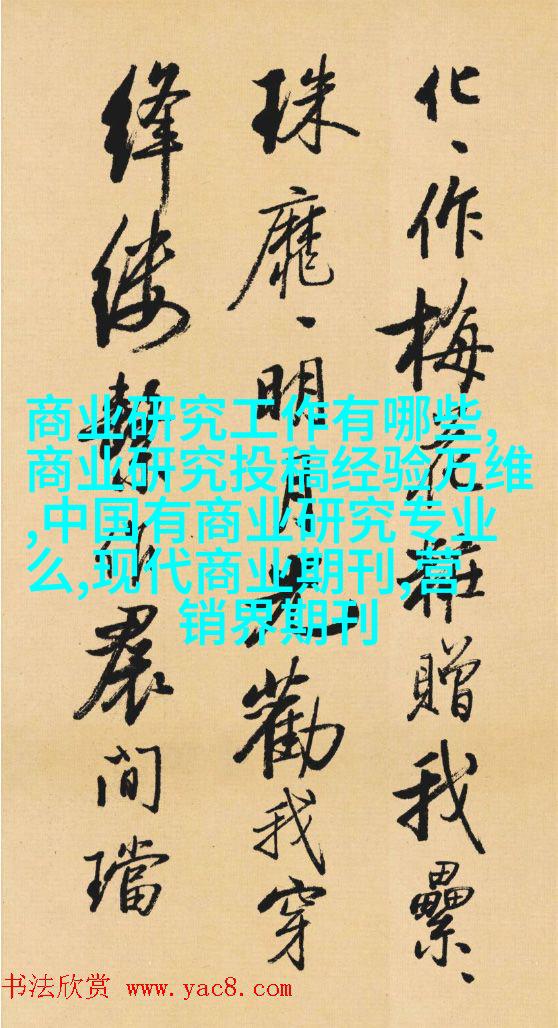 化、作梅花妝贈我纍、
珠靡、明月光勸我穿
絳縷繫作裙間璫
商业研究工作有哪些,
商业研究投稿经验万维
,中国有商业研究专业
么,现代商业期刊,营
销界期刊
书法欣赏 www.yac8.com